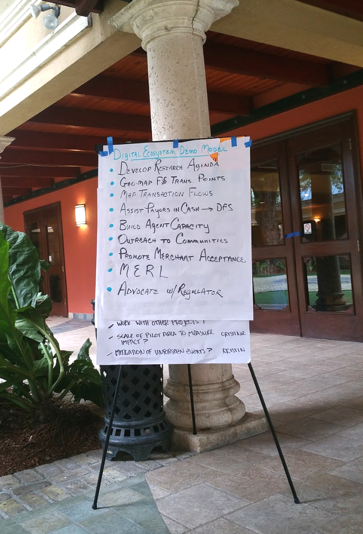 Digital Ecosystem Demo Model
• Develop Research Agenda
• Geo-Map Trans. Points
• Map Transaction Flows
• Assist Payors in Cash → DFS
• Build Agent Capacity
• Outreach to Communities
• Promote Merchant Acceptance
• MERL
• Advocate w/ Regulator
✓ Work with other projects?
✓ Scale of pilot data to measure impact?
✓ of events?